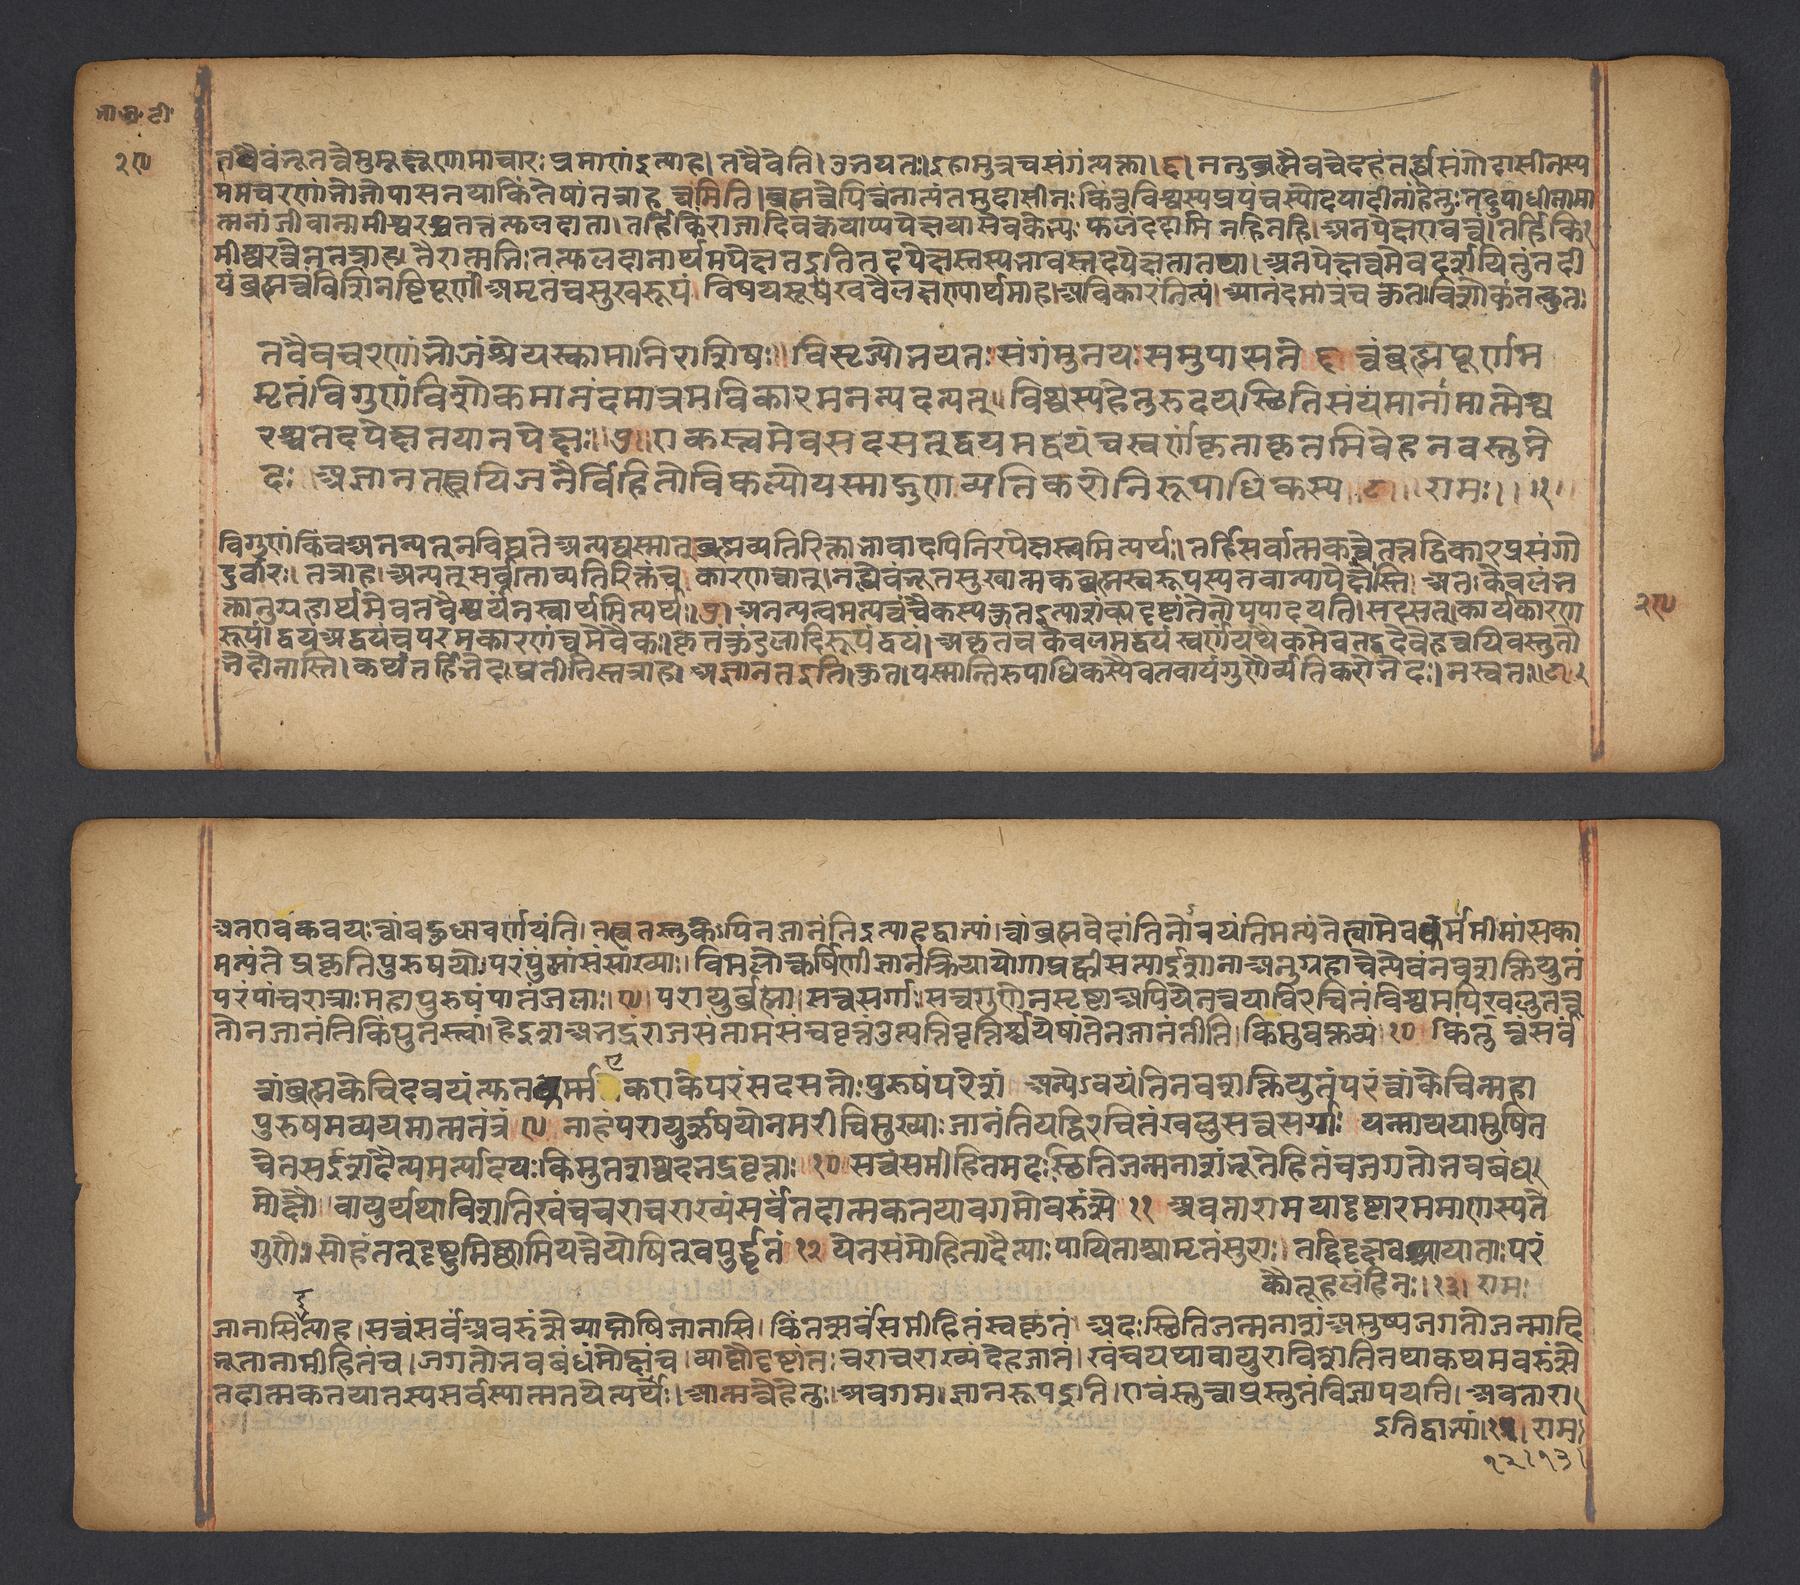 भा. अ. टी.
२९
तथैवंभूतत्वेमुमुक्षूणामाचारः प्रमाणंइत्याह। तवैवेति। उभयतः। इहामुत्रचसंगंत्यक्त्वा। ६। ननुब्रह्मैवचेदहंतर्ह्यसंगोदासीनस्य
ममचरणांभोजोपासनयाकिंतेषांतत्राह त्वमिति। ब्रह्मत्वेपित्वंनात्यंतमुदासीनः किंतुविश्वस्यप्रपंचस्योदयादीनांहेतुः तदुपाधीनामा
त्मनांजीवानामीश्वरश्चतत्तत्फलदाता। तर्हिकिंराजादिवत्कयाप्यपेक्षयासेवकेभ्यः फलंददामि नहिनहि। अनपेक्षएवत्वं। तर्हिकि
मीश्वरत्वेनतत्राह।
यंब्रह्मत्वंविशिनष्टिपूर्णं। अमृतंचसुखरूपं। विषयसुखवैलक्षण्यार्थमाह। अविकारंनित्यं। आनंदमात्रंच कुतः। विशोकंतत्कुतः
तवैवचरणांभोजंश्रेयस्कामानिराशिषः॥ विसृज्योभयतः संगंमुनयः समुपासते ६ त्वंब्रह्मपूर्णम
मृतंविगुणंविशोकमानंदमात्रमविकारमनन्यदन्यत्॥ विश्वस्यहेतुरुदयस्थितिसंयमानामात्मेश्व
रश्चतदपेक्षतयानपेक्षः॥ ७॥ एकस्त्वमेवसदसत्द्वयमद्वयंचस्वर्णंकृताकृतमिवेहनवस्तुभे
दः अज्ञानतस्त्वयिजनैर्विहितोविकल्पोयस्माद्गुणव्यतिकरोनिरूपाधिकस्य ८॥ रामः॥ २॥
विगुणं। किंचअनन्यत्नविद्यतेअन्यद्यस्मात्ब्रह्मव्यतिरिक्ताभावादपिनिरपेक्षस्त्वमित्यर्थः। तर्हिसर्वात्मकत्वेतत्तद्विकारप्रसंगो
दुर्वारः। तत्राह। अन्यत्सर्वतोव्यतिरिक्तंच कारणत्वात्। नह्येवंभूतसुखात्मकब्रह्मस्वरूपस्यतवान्यापेक्षास्ति। अतः केवलंभ
क्तानुग्रहार्थमेवतवैश्वर्यंनस्वार्थमित्यर्थः। ७। अनन्यत्वमन्यत्वंचैकस्यकुतइत्याशंक्यदृष्टांतेनोपपादयति। सदसत्। कार्यकारण
रूपं। द्वयंअद्वयंचपरमकारणंत्वमेवैकः। कृतंकुंडलादिरूपंद्वयं। अकृतंचकेवलमद्वयंस्वर्णंयथैकमेवतद्वदेवेहत्वयिवस्तुतो
भेदोनास्ति। कथंतर्हिभेदप्रतीतिस्तत्राह। अज्ञानतइति। कुतः। यस्मान्निरुपाधिकस्यैवतवायंगुणैर्व्यतिकरोभेदः। नस्वतः। ८। २
२९
अतएवकवयः त्वांबहुधावर्णयंति। तत्त्वतस्तुकेपिनजानंतिइत्याहद्वाभ्यां। त्वांब्रह्मवेदांतिनोऽवयंतिमन्यंतेत्वामेवधर्मंमीमांसका
मन्यंते प्रकृतिपुरुषयोः परंपुमांसंसांख्याः। विमलोत्कर्षिणीज्ञानक्रियायोगाप्रह्वीसत्याईशानाअनुग्रहाचेत्येवंनवशक्तियुतं
परंपांचरात्राः महापुरुषंपातंजलाः। ९। परायुर्ब्रह्मा। सत्वसर्गाः। सत्वगुणेनसृष्टाअपियेतत्वयाविरचितंविश्वमपिखलुतत्त्व
तोनजानंतिकिंपुनस्त्वां। हेईशअभद्रंराजसंतामसंचवृत्तंउत्पत्तिवृत्तिश्चयेषांतेनजानंतीति। किमुवक्तव्यं। १० किंतु त्वंसर्वं
त्वांब्रह्मकेचिदवयंत्युतधर्ममेकएकेपरंसदसतोः पुरुषंपरेशं अन्येऽवयंतिनवशक्तियुतंपरंत्वांकेचिन्महा
पुरुषमव्ययमात्मतंत्रं ९ नाहंपरायुर्ऋषयोनमरीचिमुख्याः जानंतियद्विरचितंखलुसत्वसर्गाः यन्माययामुषित
चेतसईशदैत्यमर्त्यादयः किमुतशश्वदभद्रवृत्ताः १० सत्वंसमीहितमदः स्थितिजन्मनाशंभूतेहितंचजगतोभवबंध
मोक्षौ। वायुर्यथाविशतिखंचचराचराख्यंसर्वंतदात्मकतयावगमोवरुंत्से ११ अवतारामयादृष्टारममाणस्यते
गुणैः। सोहंतद्द्रष्टुमिच्छामियत्तेयोषित्वपुर्द्धृतं १२ येनसंमोहितादैत्याः पायिताश्चामृतंसुराः। तद्दिदृक्षवआयाताः परं
कौतूहलंहिनः। १३। रामः
जानासिइत्याह। सत्वंसर्वंअवरुंत्सेव्याप्नोषिजानासि। किंतत्सर्वंसमीहितंस्वकृतं। अदः स्थितिजन्मनाशंअमुष्यजगतोजन्मादि
भूतानामीहितंच। जगतोभवबंधंमोक्षंच। व्याप्तौदृष्टांतः चराचराख्यंदेहजातं। खंचयथावायुराविशतितथाकथमवरुंत्से
तदात्मकतयातस्यसर्वस्यात्मतयेत्यर्थः। आत्मत्वेहेतुः। अवगमः। ज्ञानरूपइति। एवंस्तुत्वाप्रस्तुतंविज्ञापयति। अवतारा
इतिद्वाभ्यां। ११। रामः
१२। १३।